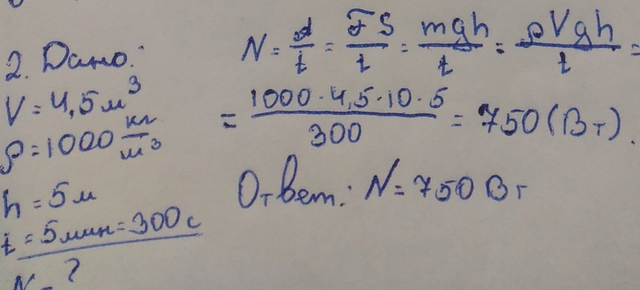 2. Дано:
V = 4,5 м³
ρ = 1000 кг/м³
h = 5 м
t = 5 мин = 300 с
N = ?
N = A/t = FS/t = mgh/t = ρVgh/t =
= 1000 · 4,5 · 10 · 5 / 300 = 750 (Вт).
Ответ: N = 750 Вт